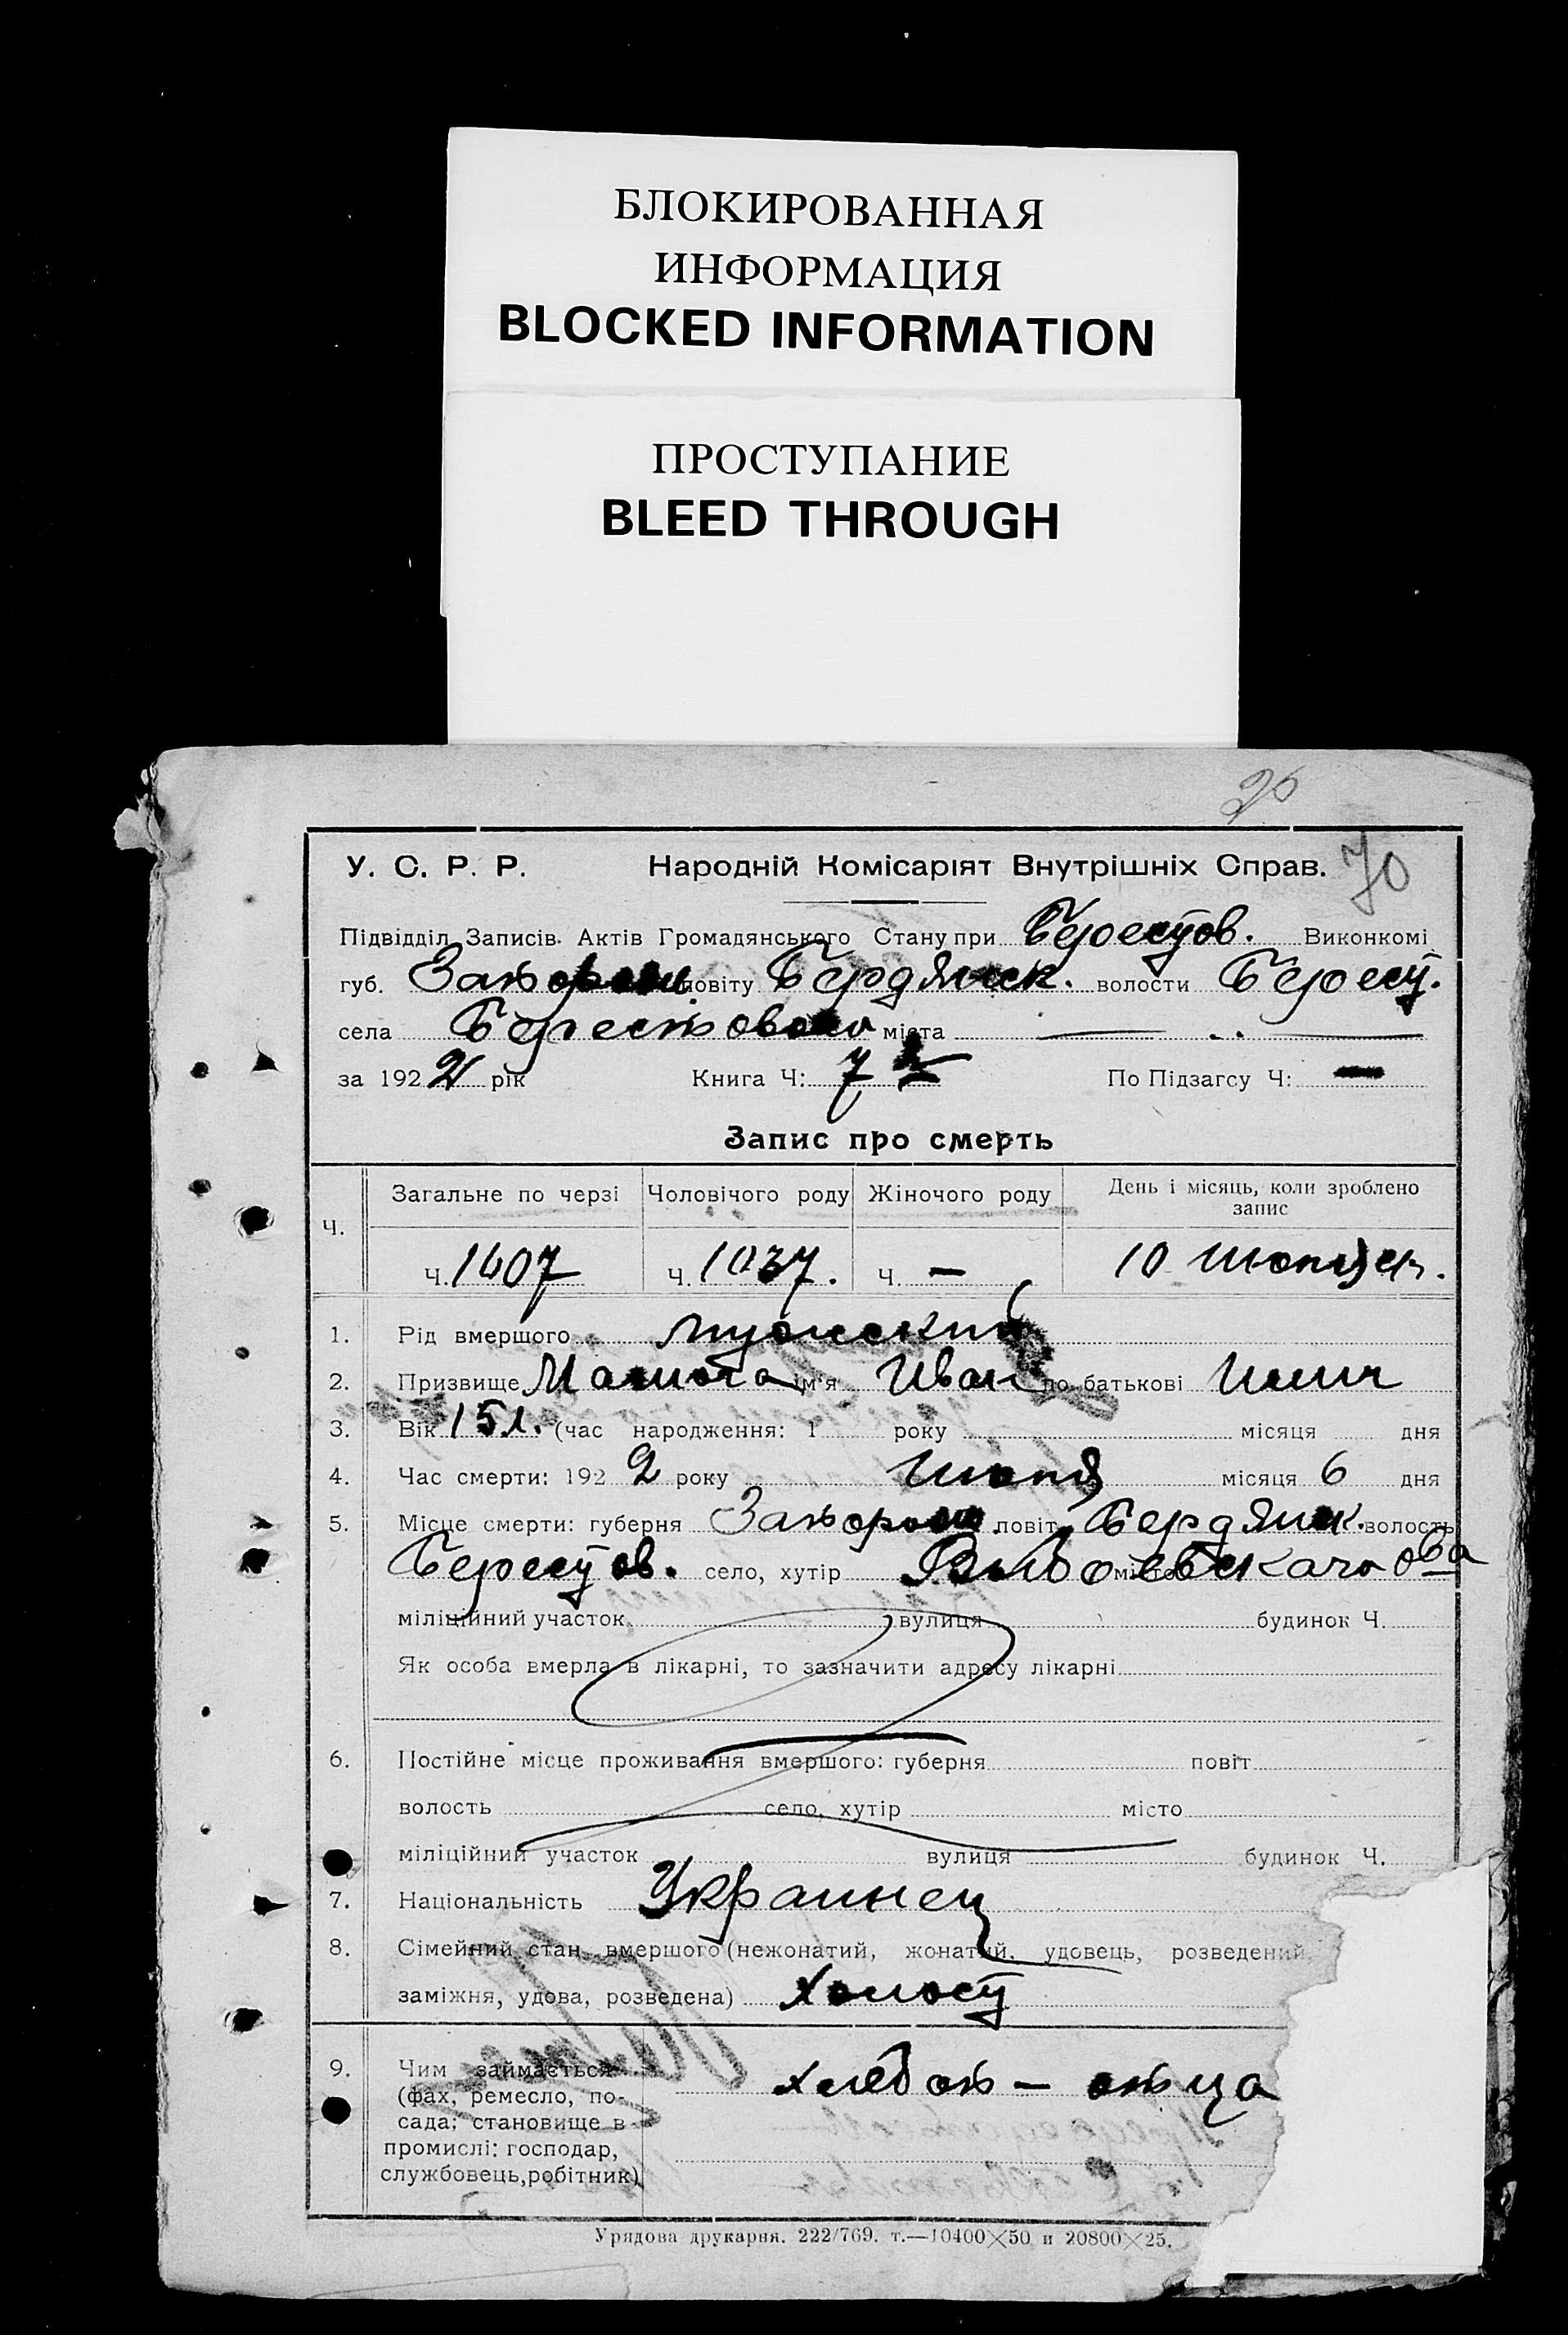 БЛОКИРОВАННАЯ
ИНФОРМАЦИЯ
BLOCKED INFORMATION
ПРОСТУПАНИЕ
BLEED THROUGH
70
У. С. Р. Р. Народній Комісаріят Внутрішніх Справ.
Підвідділ Записів Актів Громадянського Стану при Берестов. Виконкомі
губ. повіту Бердянск. волости Берест.
села міста —
за 1922 рік Книга Ч: 7 По Підзагсу Ч: —
Запис про смерть
Ч. Загальне по черзі Чоловічого роду Жіночого роду День і місяць, коли зроблено запис
Ч. 1607 Ч. 1037. Ч. — 10
1. Рід вмершого мужский
2. Призвище ім'я Иван по батькові Ильич
3. Вік 15 л. (час народження: 1 року місяця дня
4. Час смерти: 1922 року місяця 6 дня
5. Місце смерти: губерня повіт Бердянск. волость
Берестов. село, хутір місто
міліційний участок вулиця будинок Ч.
Як особа вмерла в лікарні, то зазначити адресу лікарні
6. Постійне місце проживання вмершого: губерня повіт
волость село, хутір місто
міліційний участок вулиця будинок Ч.
7. Національність Украинец
8. Сімейний стан вмершого (нежонатий, жонатий, удовець, розведений,
заміжня, удова, розведена) Холост
9. Чим займається
(фах, ремесло, по-
сада; становище в
промислі: господар,
службовець, робітник)
хлебоп — отца
Урядова друкарня. 222/769. т.—10400×50 и 20800×25.